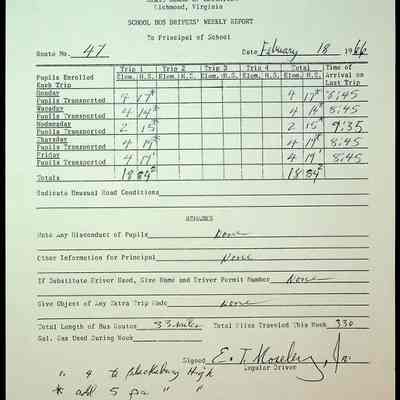 Richmond, Virginia
SCHOOL BUS DRIVERS' WEEKLY REPORT
To Principal of School
Route No. 47 Date February 18 1966
Trip 1 Trip 2 Trip 3 Trip 4 Total Time of
Pupils Enrolled Elem. H.S. Elem. H.S. Elem. H.S. Elem. H.S. Elem. H.S. Arrival on
Each Trip Last Trip
Monday
Pupils Transported 4 17* 4 17* 8:45
Tuesday
Pupils Transported 4 14* 4 14* 8:45
Wednesday
Pupils Transported 2 15* 2 15* 9:35
Thursday
Pupils Transported 4 19* 4 19* 8:45
Friday
Pupils Transported 4 19 4 19 8:45
Totals 18 84 18 84
Indicate Unusual Road Conditions
REMARKS
Note Any Misconduct of Pupils None
Other Information for Principal None
If Substitute Driver Used, Give Name and Driver Permit Number None
Give Object of Any Extra Trip Made None
Total Length of Bus Routes 33 miles Total Miles Traveled This Week 330
Gal. Gas Used During Week
Signed E. T. Moseley, Jr.
Regular Driver
" 4 to Blacksburg High
* add 5 for " "